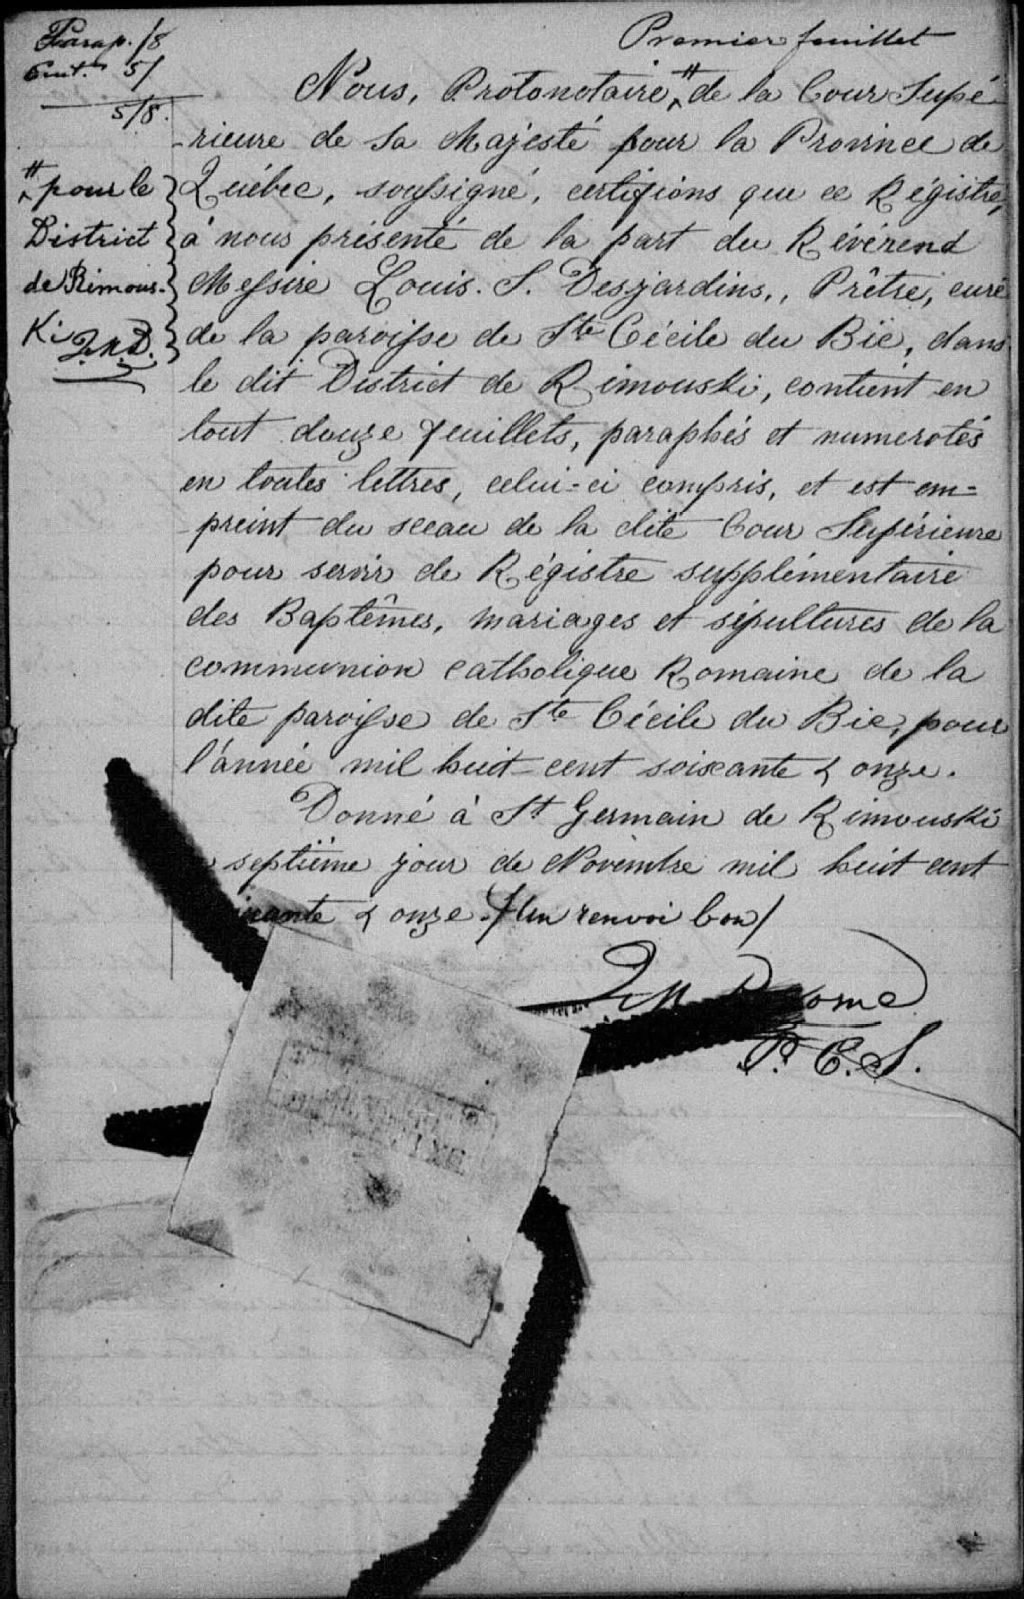 Premier feuillet
Parap. /8
Ent. 5/
5/8.
Nous, Protonotaire, # de la Cour Supé-
-rieure de Sa Majesté pour la Province de
Québec, soussigné, certifions que ce Régistre,
à nous présenté de la part du Révérend
Messire Louis. S. Desjardins,, Prêtre, curé
de la paroisse de Ste Cécile du Bic, dans
le dit District de Rimouski, contient en
tout douze feuillets, paraphés et numerotés
en toutes lettres, celui-ci compris, et est em=
preint du sceau de la dite Cour Supérieure
pour servir de Régistre supplémentaire
des Baptêmes, mariages et sépultures de la
communion catholique Romaine de la
dite paroisse de Ste Cécile du Bic, pour
l'année mil huit-cent soixante & onze.
# pour le
District
de Rimous-
Ki
Donné à St Germain de Rimouski
septième jour de Novembre mil huit cent
& onze. / Un renvoi bon /
P. C. S.